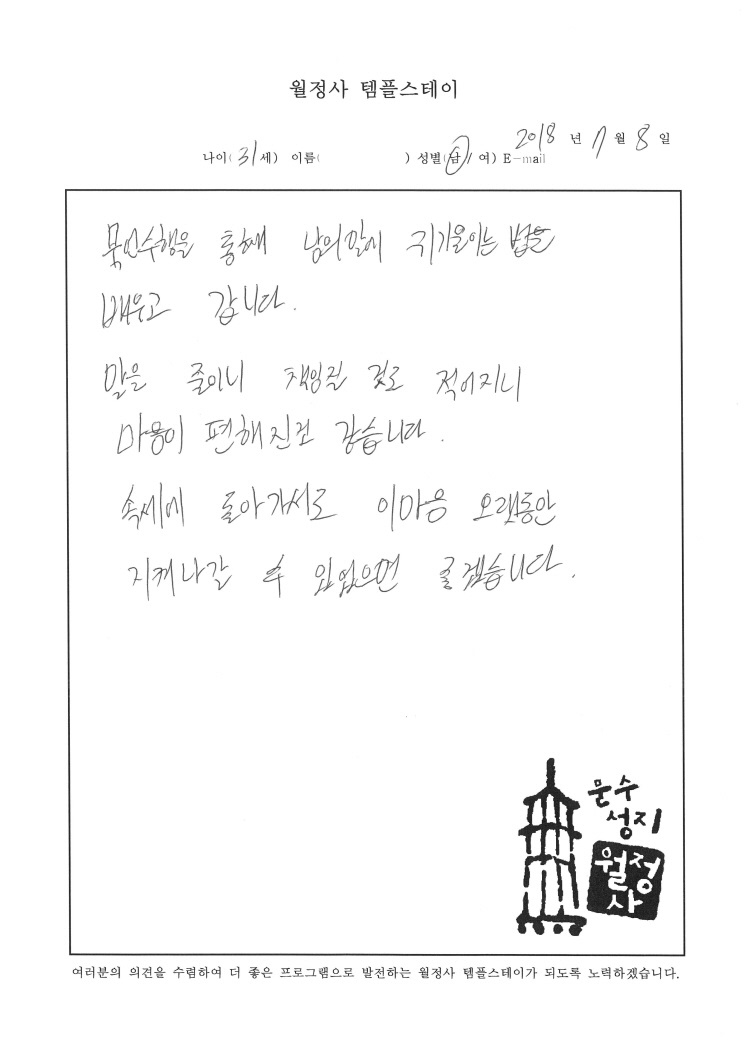 월정사 템플스테이
2018 년 7 월 8 일
나이( 31 세) 이름( ) 성별(남 / 여) E-mail
묵언수행을 통해 남의말에 귀기울이는 법을
배우고 갑니다.
말을 줄이니 책임질 것도 적어지니
마음이 편해진것 같습니다.
속세에 돌아가서도 이마음 오랫동안
지켜나갈 수 있었으면 좋겠습니다.
문수
성지
월정
사
여러분의 의견을 수렴하여 더 좋은 프로그램으로 발전하는 월정사 템플스테이가 되도록 노력하겠습니다.